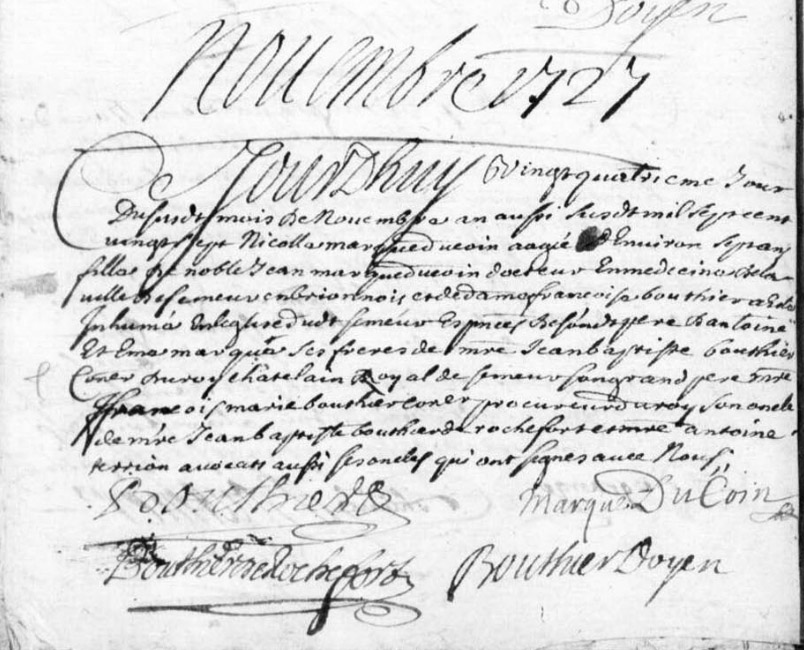 Doyen
Novembre 1727
Jourdhuy vingtquatrieme Jour
Dususdt mois de Novembre an aussi susdt mil sept cent
vingt sept Nicollas marqueducoin aagée d Environ sept ans
fillas de noble Jean marqueducoin docteur En medecine de la
ville de semeur en brionnois et de dame francoise bouthier a Esté
Inhumé En leglise dudt semeur Es pnces de sondt pere Dantoine
Et marques ses freres de mre Jean baptiste bouthier
Coner du roy chatelain Royal de semeur son grand pere mre
francois marie bouthier coner procureur du roy son oncle
de mre Jean baptiste bouthier de rochefort et mre antoine
terrion avocats aussi ses oncles qui ont signes avec Nous
Bouthier Marque Du Coin
Bouthier de Rochefort Bouthier Doyen